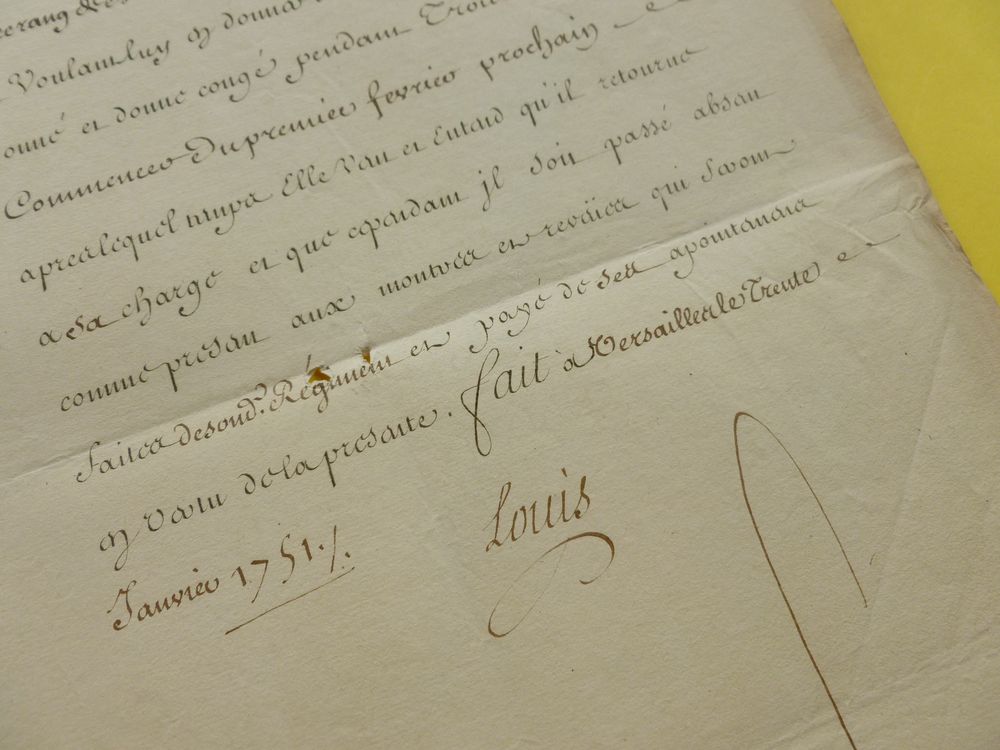 Voulant luy en donner
onné et donne congé pendant Trois
Commencer du premier fevrier prochain
apres lequel temps Elle Veut et Entend qu'il retourne
a sa charge et que cependant il soit passé absent
comme present aux montres et reveües qui seront
faites de son d. Régiment et payé de ses apointemens
en vertu de la presente. fait à Versailles le Trente
Janvier 1751./.
Louis